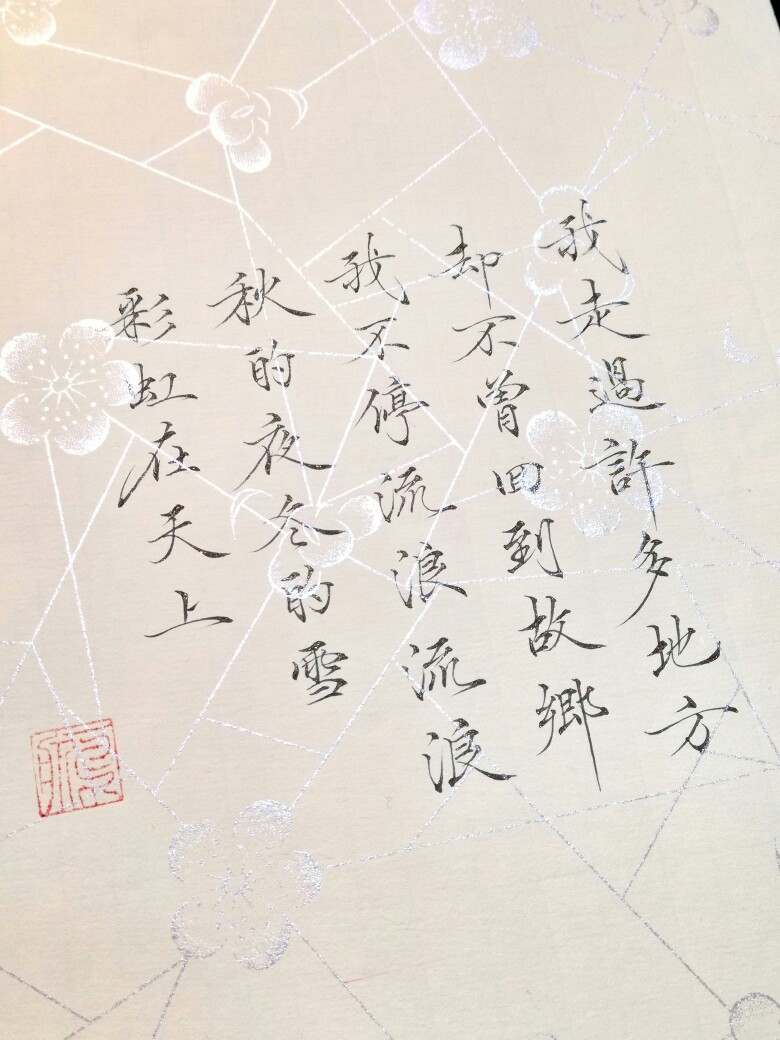 我走過許多地方
却不曾回到故鄉
我不停流浪流浪
秋的夜冬的雪
彩虹在天上